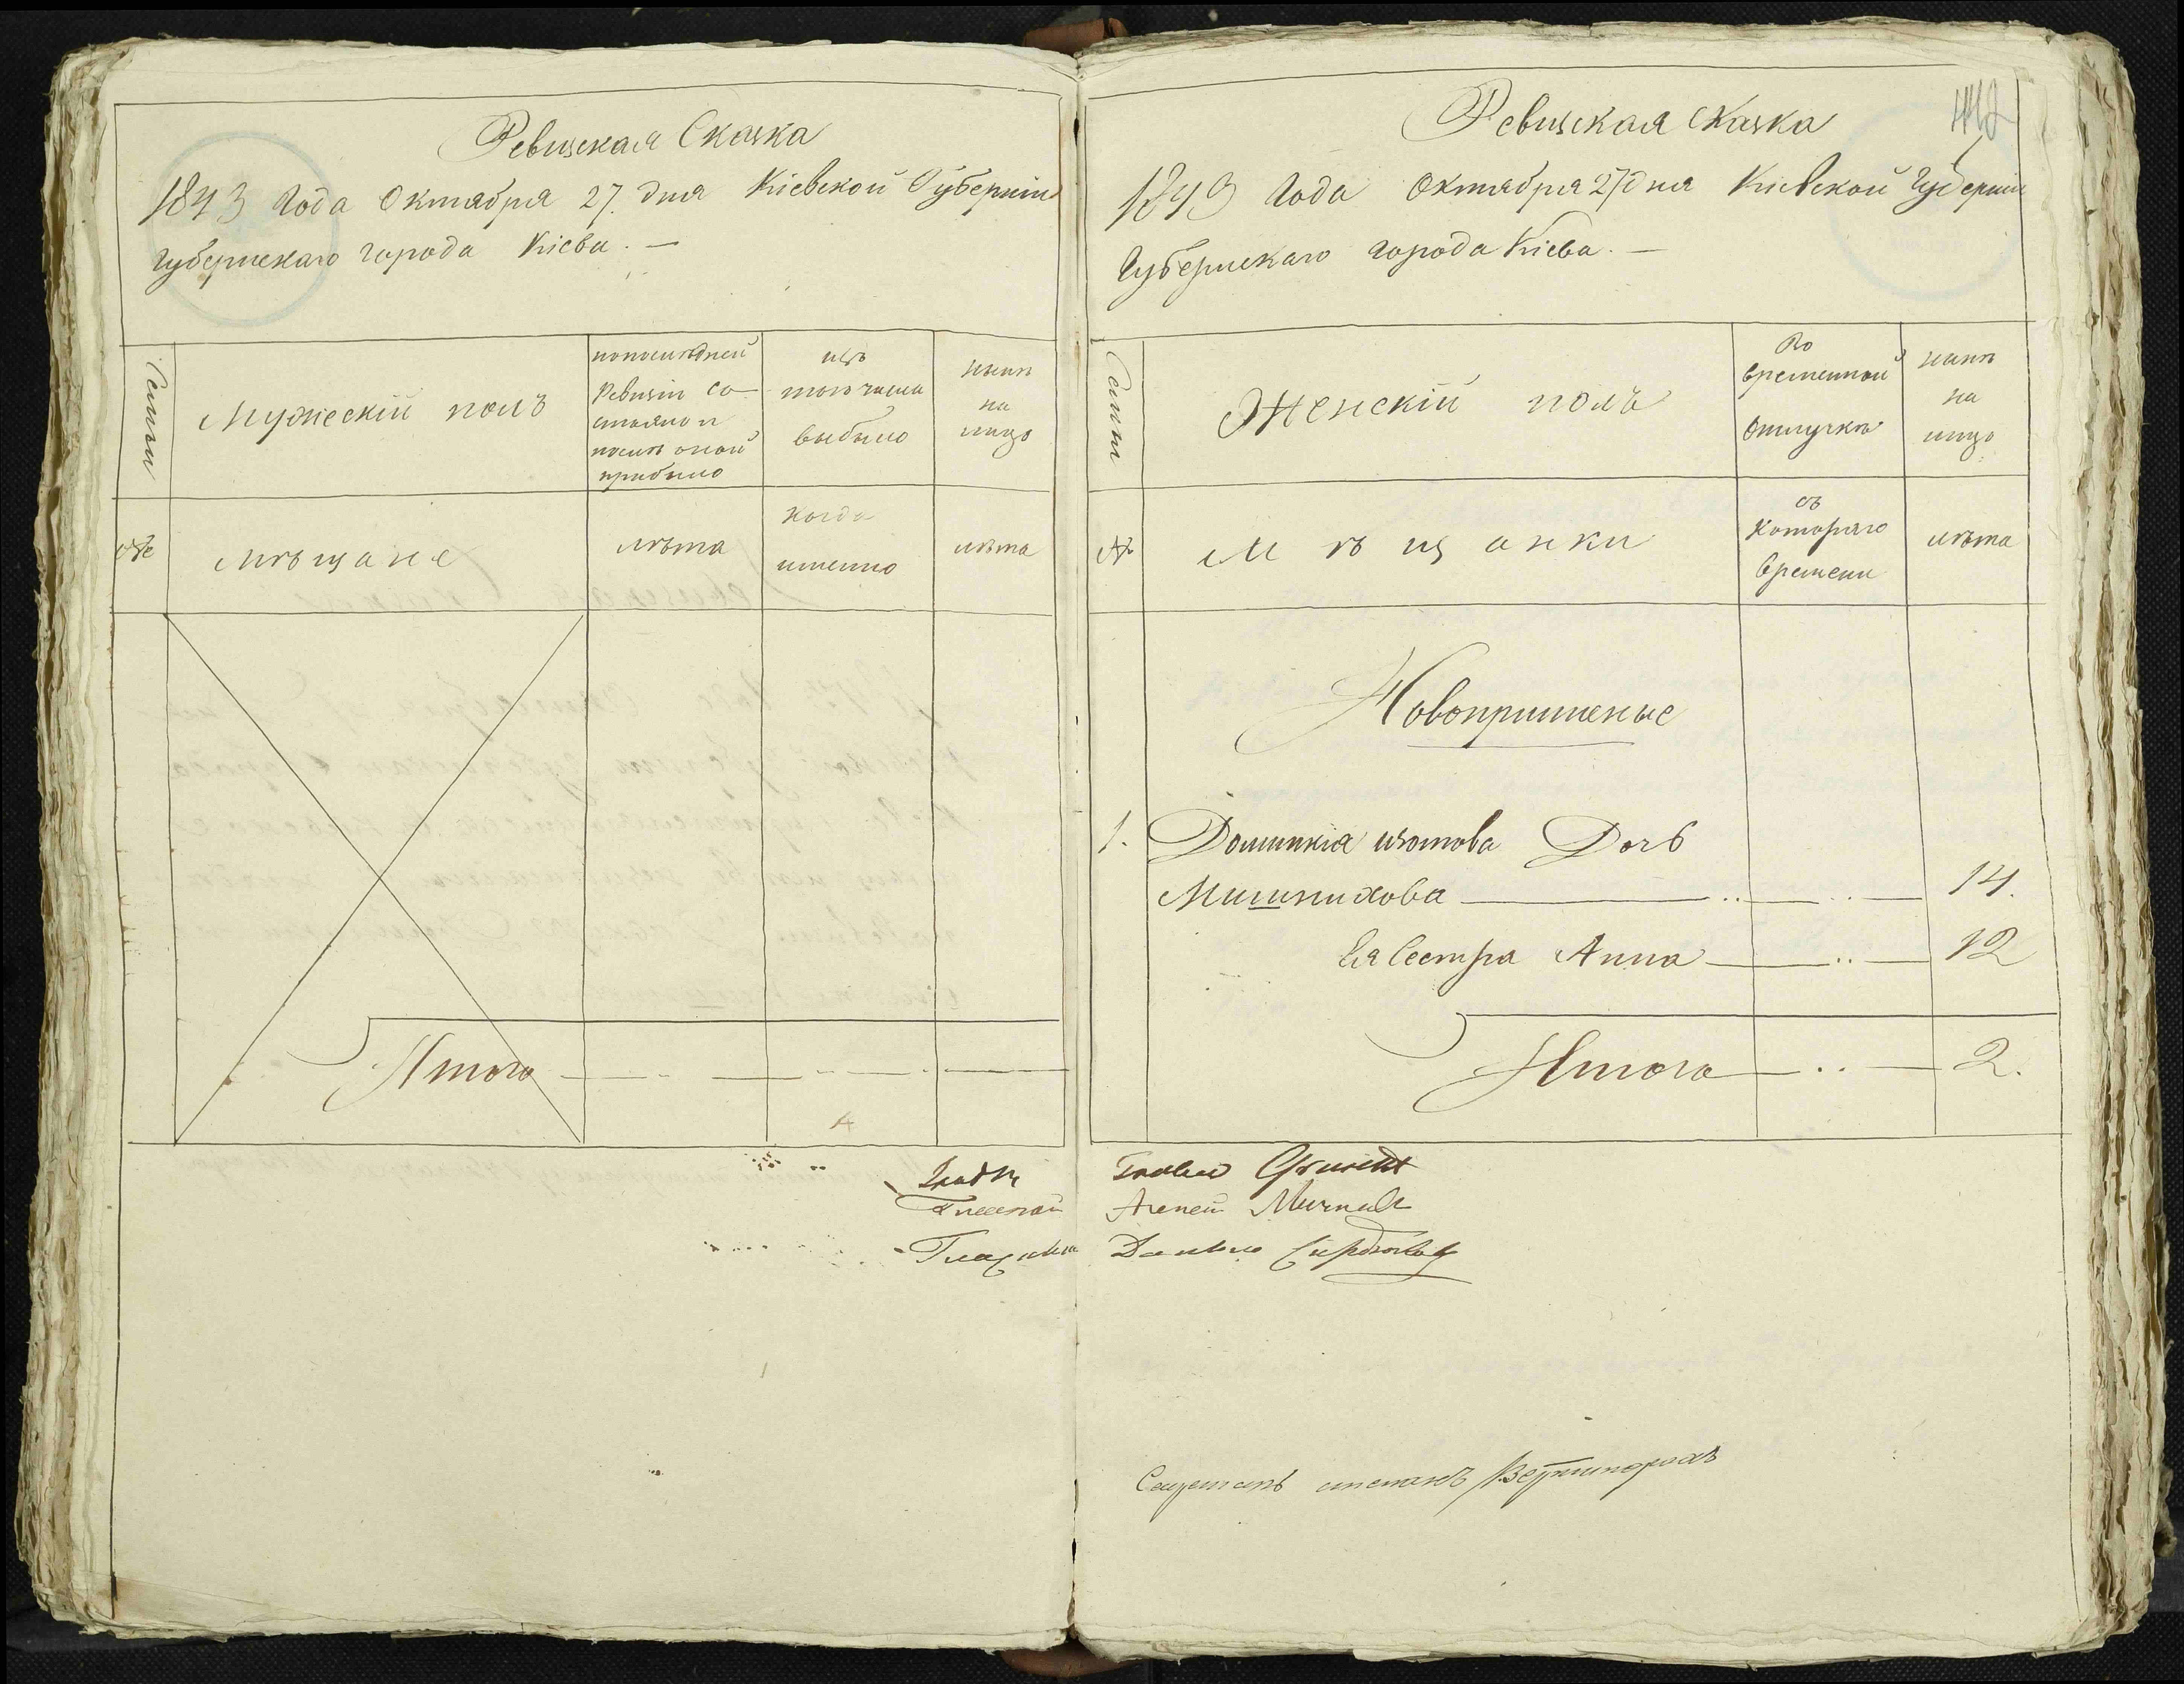 Ревизская Сказка
1843 Года Октября 27. дня Кіевской Губерніи
Губернскаго города Кіева. —
Семьи
Мужескій полъ
попослѣдней
Ревизіи со-
стояло и
послѣ оной
прибыло
изъ
того числа
выбыло
нынѣ
на
лицо
№
Мѣщане
лѣта
когда
именно
лѣта
Итого
Ревизская Сказка
442
1843 Года Октября 27 дня Кіевской Губерніи
Губернскаго города Кіева. —
Семьи
Женскій полъ
Во
временной
отлучкѣ
нынѣ
на
лицо
№
Мѣщанки
съ
котораго
времени
лѣта
Новопришеные
1. Доминикія Изотова Дочь
Мишнихова 14.
Ея Сестра Анна 12
Итого 2.
Гласный
Данило